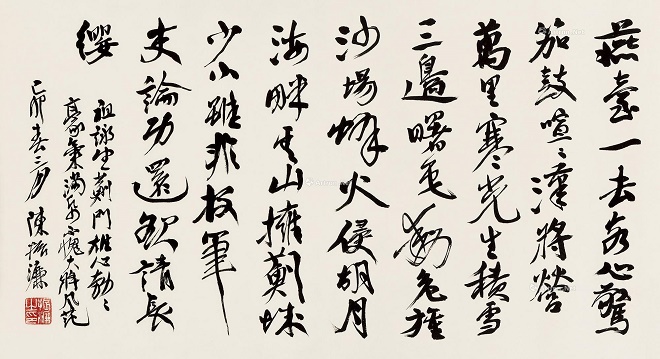 燕臺一去客心驚
笳鼓喧〻漢將營
萬里寒光生積雪
三邊曙色動危旌
沙場烽火侵胡月
海畔雲山擁薊城
少小雖非投筆
吏論功還欲請長
纓
祖詠望薊門雄心勃〻
豪氣滿不愧大將風範
己卯春三月陳振濂